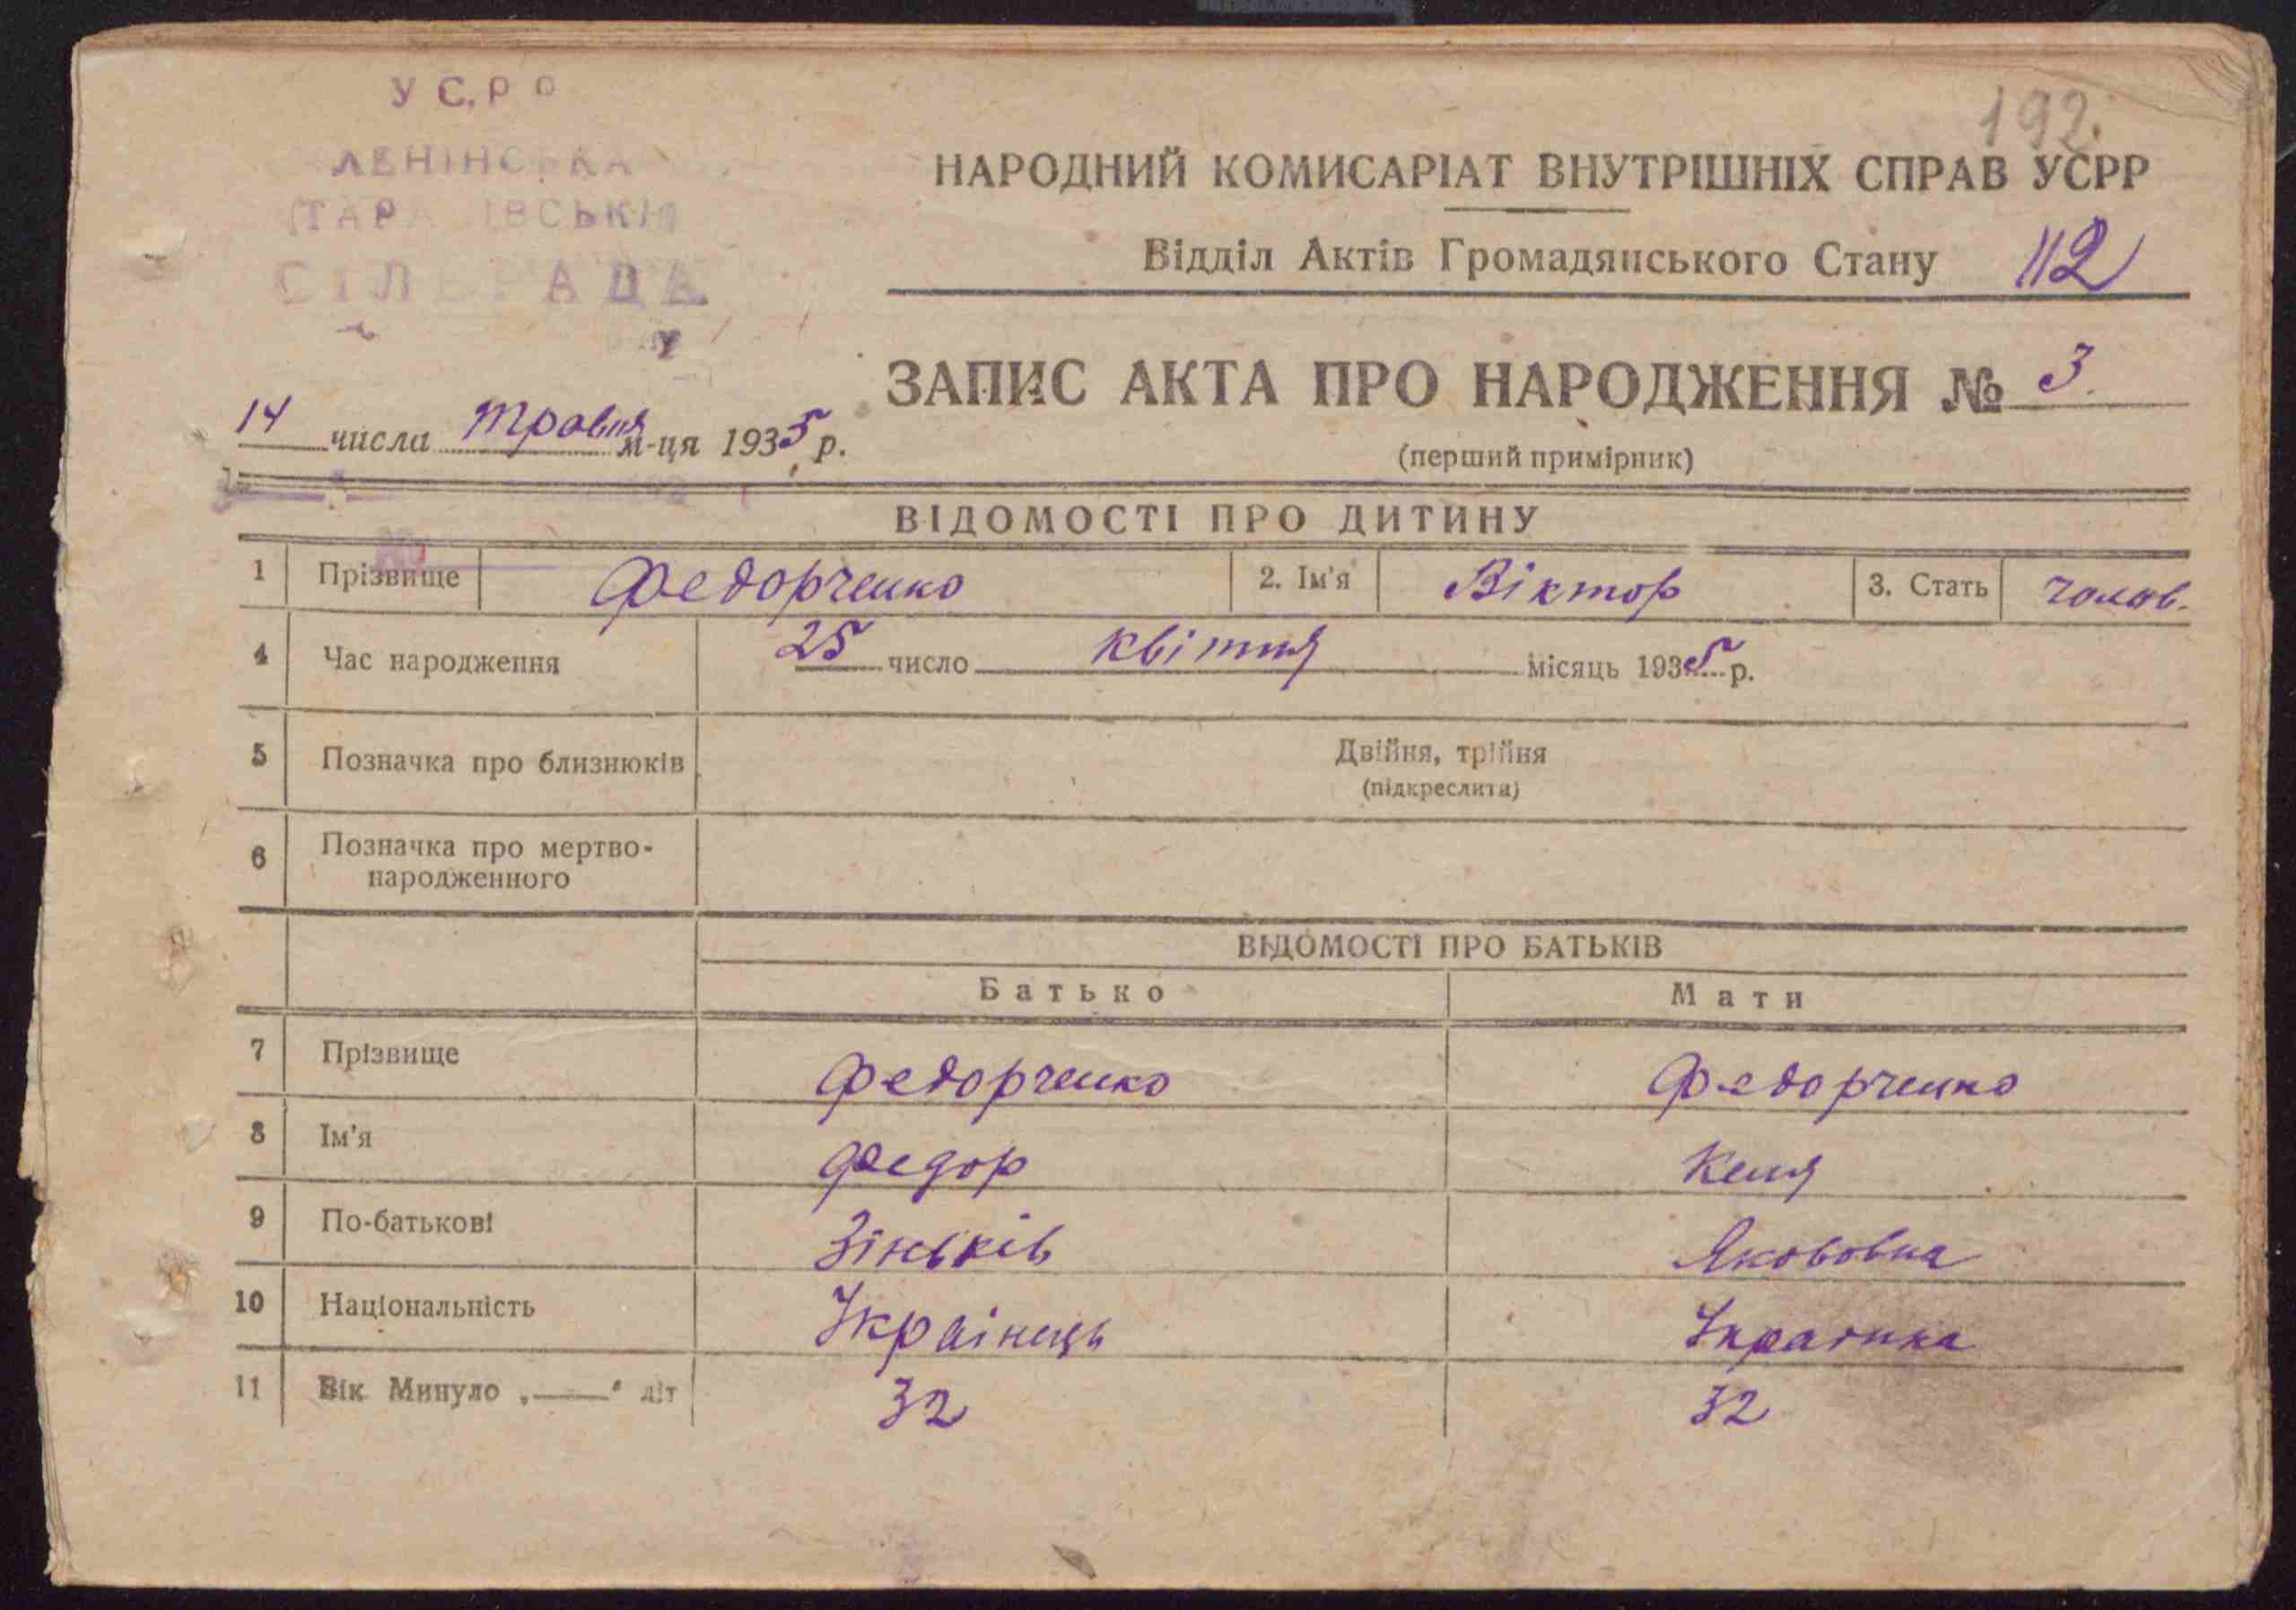 УСРР
192.
НАРОДНИЙ КОМИСАРІАТ ВНУТРІШНІХ СПРАВ УСРР
ЛЕНІНСЬКА
СІЛЬРАДА
Відділ Актів Громадянського Стану 112
ЗАПИС АКТА ПРО НАРОДЖЕННЯ № 3.
14 числа травня м-ця 1935 р.
(перший примірник)
ВІДОМОСТІ ПРО ДИТИНУ
1 Прізвище Федорченко 2. Ім'я Віктор 3. Стать чолов.
4 Час народження 25 число квітня місяць 1935 р.
5 Позначка про близнюків Двійня, трійня
(підкреслити)
6 Позначка про мертво-
народженного
ВІДОМОСТІ ПРО БАТЬКІВ
Батько Мати
7 Прізвище Федорченко Федорченко
8 Ім'я Федор
9 По-батькові Зіньків Якововна
10 Національність Українець Українка
11 Вік Минуло „—“ літ 32 32